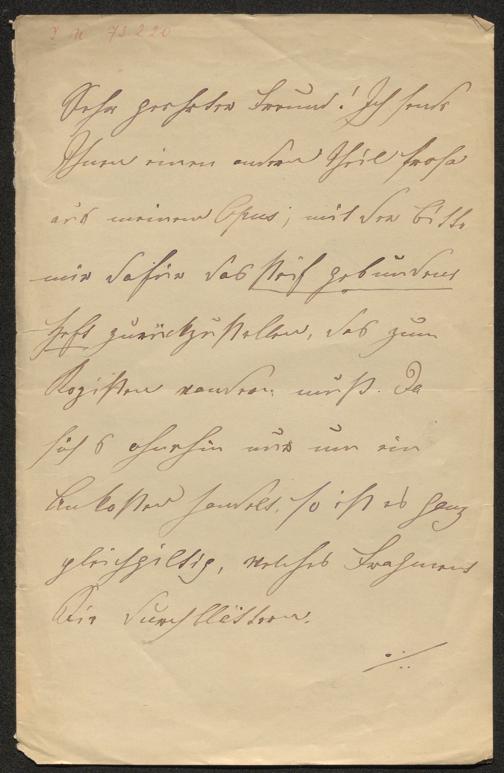 I N 73220
Sehr geehrter Freund! Ich sende
Ihnen einen andern Theil Prosa
aus meinem Opus, mit der Bitte
mir dafür das steif gebundene
Heft zurückzustellen, das zum
Kopisten wandern muß. Da
sich's ohnehin nur um ein
Ankosten handelt, so ist es ganz
gleichgiltig, welches Fragment
Sie durchblättern.
./.